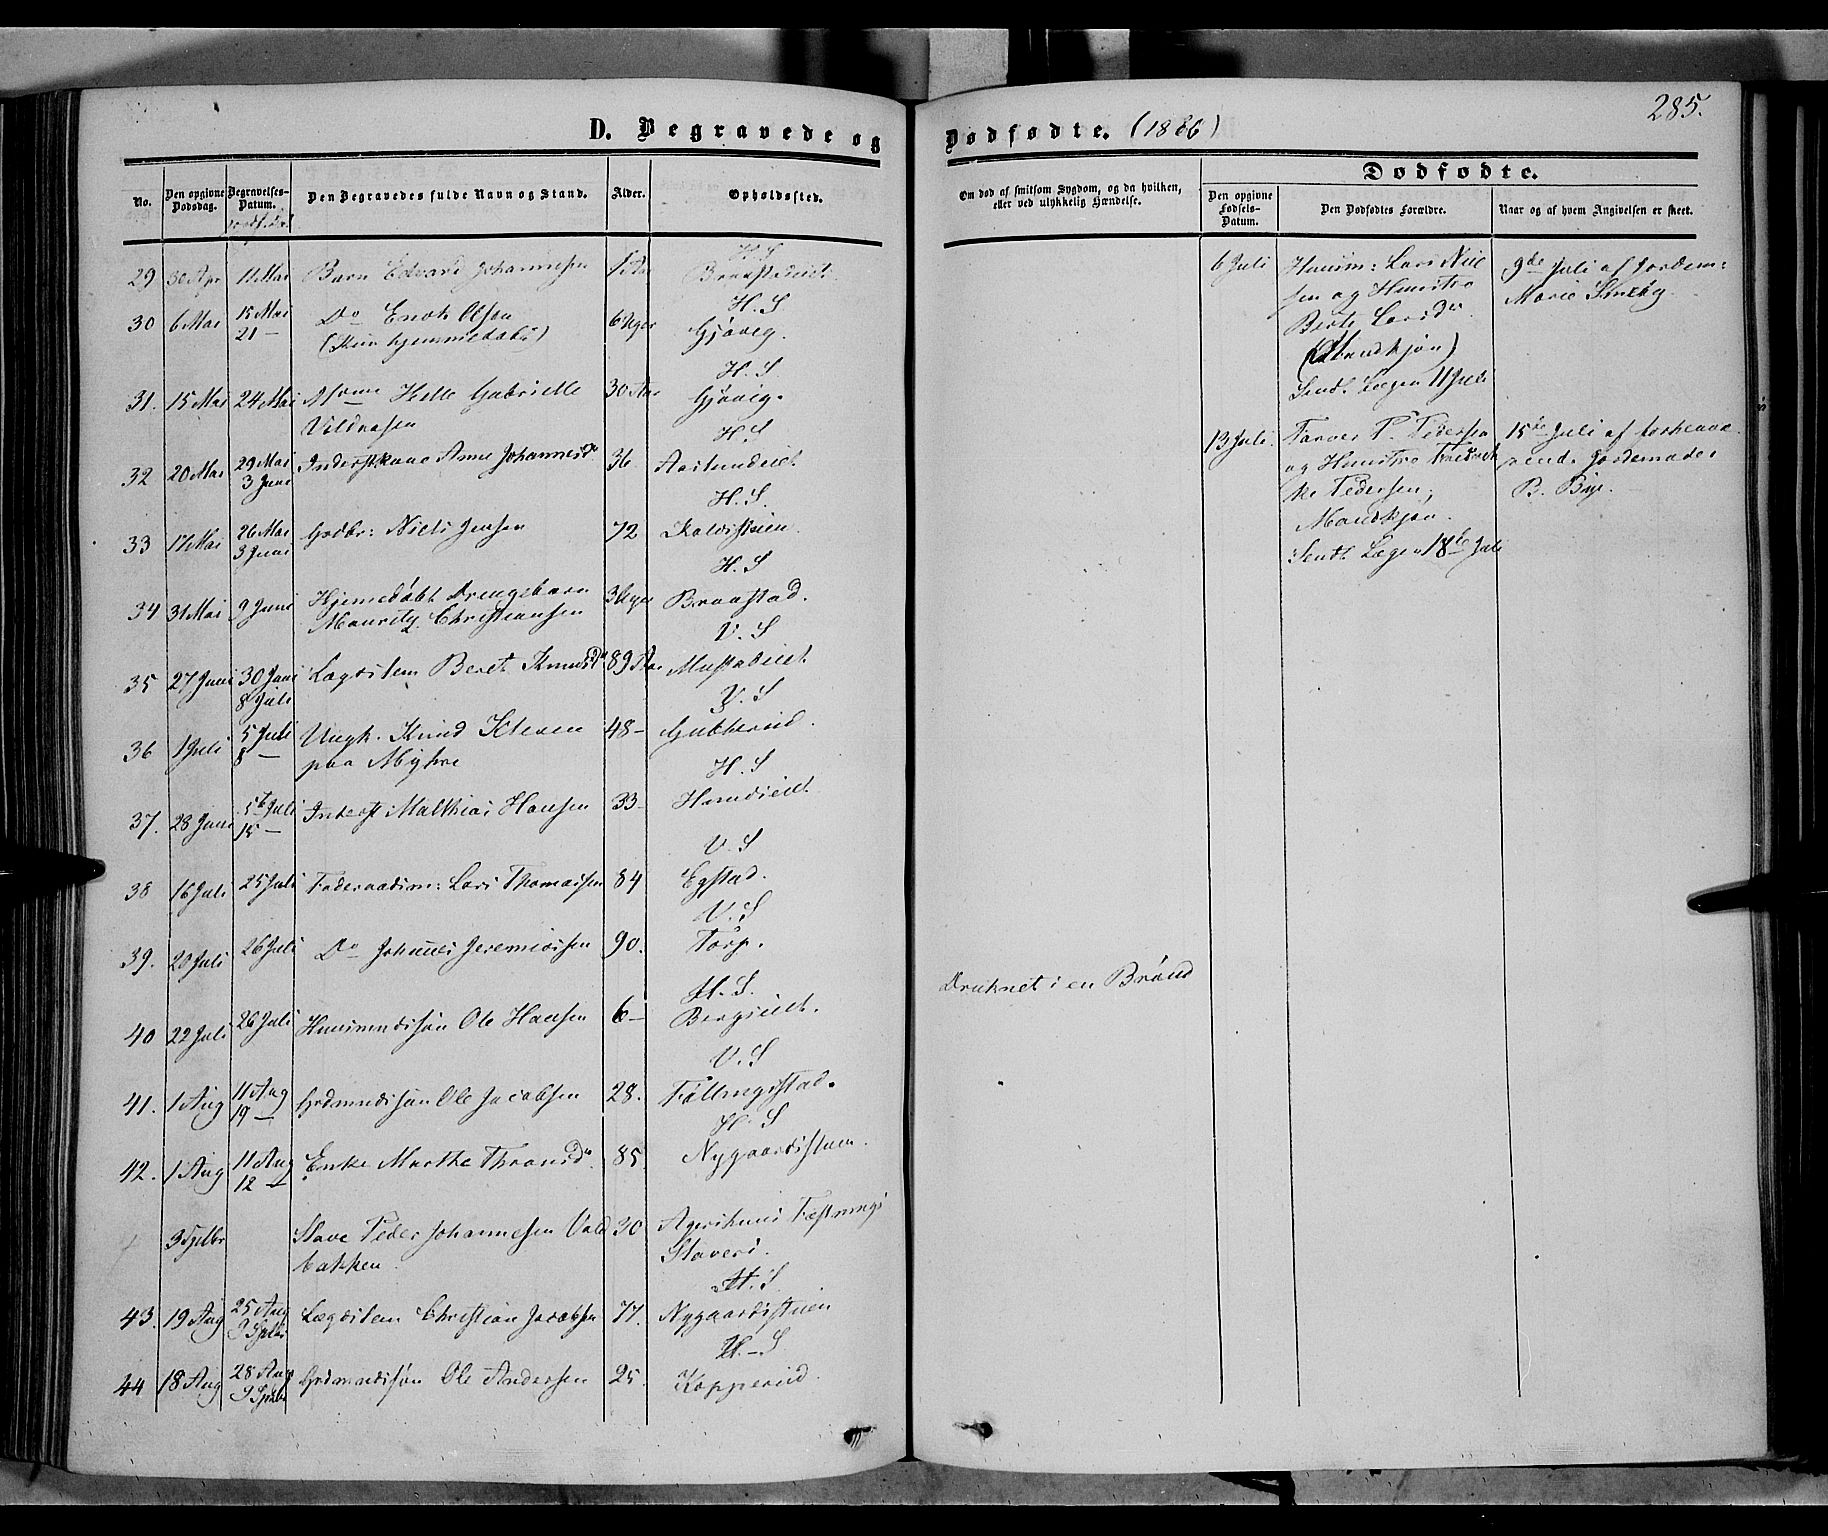 285.
D. Begravede og Dødfødte. (1866)
No.
Den opgivne Dødsdag.
Begravelses-Datum.
Den Begravedes fulde Navn og Stand.
Alder.
Opholdssted.
Om død af smitsom Sygdom, og da hvilken, eller ved ulykkelig Hændelse.
Dødfødte.
Den opgivne Fødsels-Datum.
Den Dødfødtes Forældre.
Naar og af hvem Angivelsen er skeet.
H. S
29 30 Apr 11 Mai Barn Edvard Johannesen 1 Aar Braastadeiet
H. S
30 6 Mai 15 Mai 21 — Do Enok Olsen 6 Uger Gjøvig.
(Kun hjemmedøbt)
H. S
31. 15 Mai 24 Mai Helle Gabrielle 30 Aar Gjøvig.
H. S
32 20 Mai 29 Mai 3 Juni Inderstkone Anne Johannesdr 36 Aaslundeiet
H. S.
33 17 Mai 26 Mai 3 Juni Gaardbr: Niels Jensen 72
H. S
34 31 Mai 9 Juni Hjemedøbt Drengebarn 3 Uger Braastad.
Mauritz Christiansen
V. S
35 27 Juni 30 Juni 8 Juli Lægdslem Beret Knudsdr 89 Aar Mustadeiet
V. S
36 1 Juli 5 Juli 8 — Ungk. Knud Iversen 48 –
paa Myhre
H. S
37. 28 Juni 5te Juli 15 — Inderst Mathias Hansen 33 – Hundseiet
V. S
38 16 Juli 25 Juli Føderaadsm: Lars Thomassen 84 Egstad.
V. S
39. 20 Juli 26 Juli Do Johannes Jeremiassen 90. Torp.
H. S.
40 22 Juli 26 Juli Huusmandssøn Ole Hansen 6 – Bergseiet. Druknet i en Brønd
V. S
41. 1 Aug 11 Aug 19 — Grdmandssøn Ole Jacobsen 28. Føllingstad.
H. S
42. 1 Aug 11 Aug 12 — Enke Marthe Thronsdr. 85. Nygaardsstuen.
3 Sptbr Slave Peder Johannesen 30 Agershuus Fæstnings
bakken Slaveri.
H. S
43. 19 Aug 25 Aug 9 Sptbr Lægdslem Christian Jacobsen 77. Nygaardsstuen
H. S
44 18 Aug 28 Aug 9 Sptbr Grdmandssøn Ole Andersen 25. Kopperud.
6 Juli Huusm: Lars Niel
sen og Hustro
Berte Larsdr
(Mandkjøn)
Sendt Lægen 11 Juli
9de Juli af Jordem:
Marie Smeby.
13 Juli. Farver P. Pedersen
og Hustro Fredrik
ke Pedersen,
Mandkjøn.
Sendt Lægen 18de Juli
15de Juli af forhenvæ
rende Jordemoder
B. Bye.